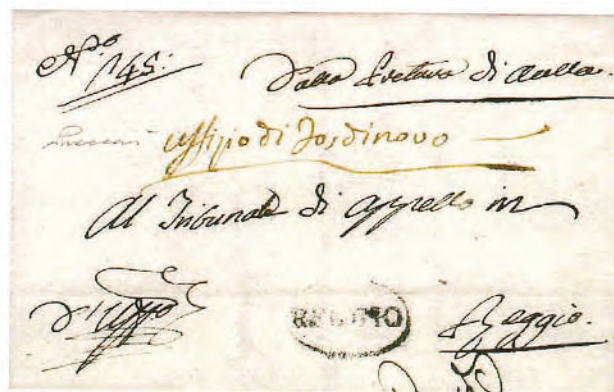 N.o 145: Dalla Pretura di Aulla.
Uffizio di Fosdinovo
Al Tribunale di Appello in
D'uffo REGGIO Reggio.